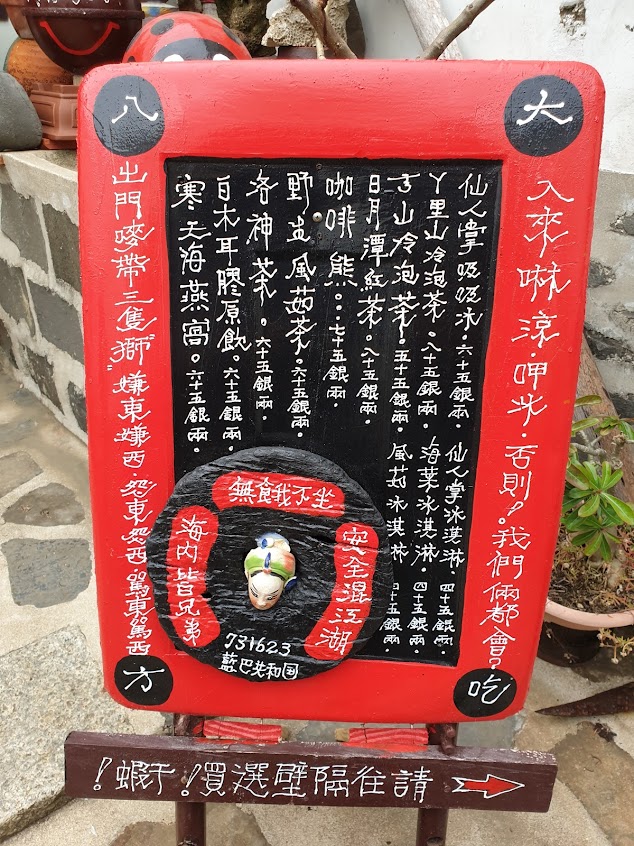 大
吃
八
方
入來啉涼.呷冰.否則!我們倆都會?
仙人掌吸吸冰.六十五銀兩.
丫里山冷泡茶.八十五銀兩.
山冷泡茶.五十五銀兩.
日月潭紅茶.八十五銀兩.
咖啡熊...七十五銀兩.
野生風茹茶.六十五銀兩.
各神茶.六十五銀兩.
白木耳膠原飲.六十五銀兩.
寒天海燕窩.六十五銀兩.
仙人掌冰淇淋.四十五銀兩.
海菜冰淇淋.四十五銀兩.
風茹冰淇淋 四十五銀兩.
無餓不坐
安全混江湖
海內皆兄弟
731623
藍巴共和国
出門嘜帶三隻"獅"嫌東嫌西.怨東怨西.罵東罵西
請往隔壁選買!蝦于!